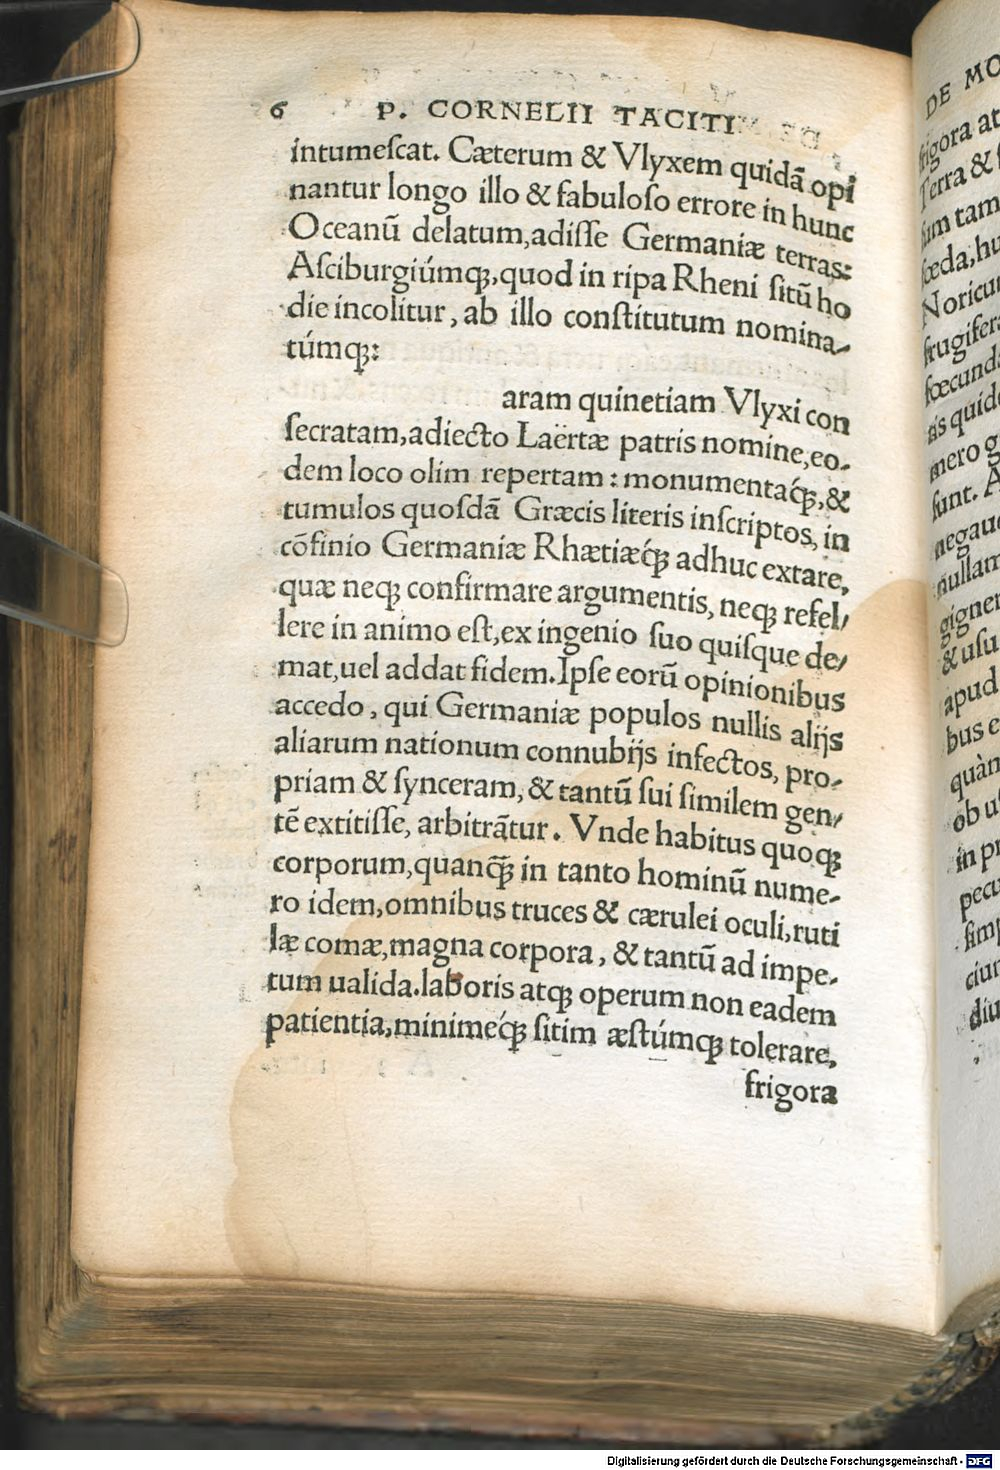 6 P. CORNELII TACITI
intumeſcat. Cæterum & Vlyxem quidã opi
nantur longo illo & fabuloſo errore in hunc
Oceanũ delatum,adiſſe Germaniæ terras:
Aſciburgiúmq́;,quod in ripa Rheni ſitũ ho
die incolitur, ab illo conſtitutum nomina-
túmq;:
aram quinetiam Vlyxi con
ſecratam,adiecto Laërtæ patris nomine,eo-
dem loco olim repertam: monumentaq́;,&
tumulos quoſdã Græcis literis inſcriptos, in
cõfinio Germaniæ Rhætiæq́; adhuc extare,
quæ neq; confirmare argumentis, neq; refel/
lere in animo eſt,ex ingenio ſuo quiſque de/
mat,uel addat fidem.Ipſe eorũ opinionibus
accedo, qui Germaniæ populos nullis alijs
aliarum nationum connubijs infectos, pro-
priam & ſynceram, & tantũ ſui ſimilem gen/
tẽ extitiſſe, arbitrãtur. Vnde habitus quoq;
corporum,quanq̃; in tanto hominũ nume-
ro idem,omnibus truces & cærulei oculi,ruti
læ comæ,magna corpora, & tantũ ad impe-
tum ualida.laboris atq; operum non eadem
patientia,minimeq́; ſitim æſtúmq; tolerare,
frigora
DE MO
frigora at
Terra &
ſum tam
fœda,hu
Noricu
frugifera
fœcunda
tis quide
mero g
ſunt. A
negaue
nullam
gigner
& uſu
apud
bus e
quàm
ob uſ
in pr
pecu
ſimp
ciun
diu
Digitalisierung gefördert durch die Deutsche Forschungsgemeinschaft - DFG